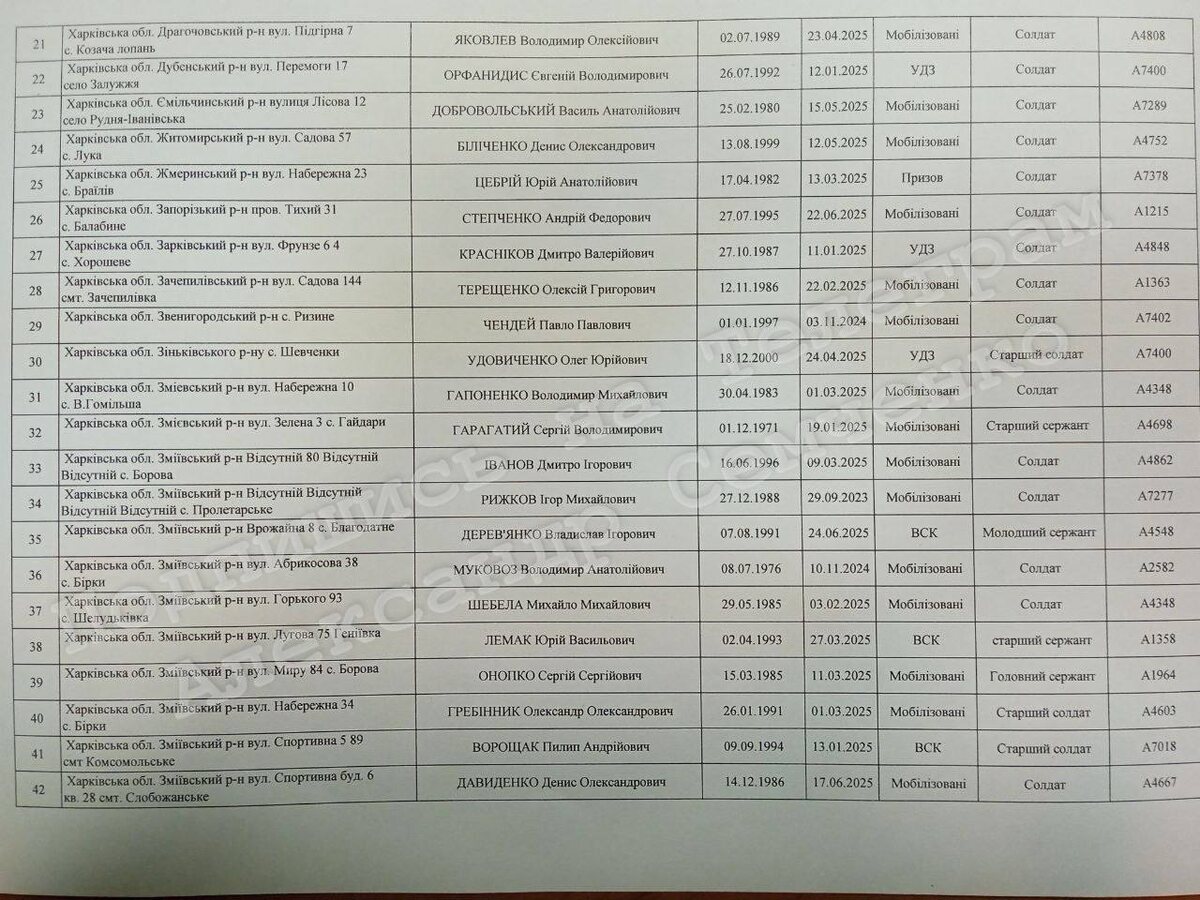 21 Харківська обл. Драгочовський р-н вул. Підгірна 7
с. Козача лопань ЯКОВЛЕВ Володимир Олексійович 02.07.1989 23.04.2025 Мобілізовані Солдат А4808
22 Харківська обл. Дубенський р-н вул. Перемоги 17
село Залужжя ОРФАНИДИС Євгеній Володимирович 26.07.1992 12.01.2025 УДЗ Солдат А7400
23 Харківська обл. Ємільчинський р-н вулиця Лісова 12
село Рудня-Іванівська ДОБРОВОЛЬСЬКИЙ Василь Анатолійович 25.02.1980 15.05.2025 Мобілізовані Солдат А7289
24 Харківська обл. Житомирський р-н вул. Садова 57
с. Лука БІЛІЧЕНКО Денис Олександрович 13.08.1999 12.05.2025 Мобілізовані Солдат А4752
25 Харківська обл. Жмеринський р-н вул. Набережна 23
с. Браїлів ЦЕБРІЙ Юрій Анатолійович 17.04.1982 13.03.2025 Призов Солдат А7378
26 Харківська обл. Запорізький р-н пров. Тихий 31
с. Балабине СТЕПЧЕНКО Андрій Федорович 27.07.1995 22.06.2025 Мобілізовані Солдат А1215
27 Харківська обл. Зарківський р-н вул. Фрунзе 6 4
с. Хорошеве КРАСНІКОВ Дмитро Валерійович 27.10.1987 11.01.2025 УДЗ Солдат А4848
28 Харківська обл. Зачепилівський р-н вул. Садова 144
смт. Зачепилівка ТЕРЕЩЕНКО Олексій Григорович 12.11.1986 22.02.2025 Мобілізовані Солдат А1363
29 Харківська обл. Звенигородський р-н с. Ризине ЧЕНДЕЙ Павло Павлович 01.01.1997 03.11.2024 Мобілізовані Солдат А7402
30 Харківська обл. Зіньківського р-ну с. Шевченки УДОВИЧЕНКО Олег Юрійович 18.12.2000 24.04.2025 УДЗ Старший солдат А7400
31 Харківська обл. Змієвський р-н вул. Набережна 10
с. В.Гомільша ГАПОНЕНКО Володимир Михайлович 30.04.1983 01.03.2025 Мобілізовані Солдат А4348
32 Харківська обл. Змієвський р-н вул. Зелена 3 с. Гайдари ГАРАГАТИЙ Сергій Володимирович 01.12.1971 19.01.2025 Мобілізовані Старший сержант А4698
33 Харківська обл. Зміївський р-н Відсутній 80 Відсутній
Відсутній с. Борова ІВАНОВ Дмитро Ігорович 16.06.1996 09.03.2025 Мобілізовані Солдат А4862
34 Харківська обл. Зміївський р-н Відсутній Відсутній
Відсутній Відсутній с. Пролетарське РИЖКОВ Ігор Михайлович 27.12.1988 29.09.2023 Мобілізовані Солдат А7277
35 Харківська обл. Зміївський р-н Врожайна 8 с. Благодатне ДЕРЕВ'ЯНКО Владислав Ігорович 07.08.1991 24.06.2025 ВСК Молодший сержант А4548
36 Харківська обл. Зміївський р-н вул. Абрикосова 38
с. Бірки МУКОВОЗ Володимир Анатолійович 08.07.1976 10.11.2024 Мобілізовані Солдат А2582
37 Харківська обл. Зміївський р-н вул. Горького 93
с. Шелудьківка ШЕБЕЛА Михайло Михайлович 29.05.1985 03.02.2025 Мобілізовані Солдат А4348
38 Харківська обл. Зміївський р-н вул. Лугова 75 Геніївка ЛЕМАК Юрій Васильович 02.04.1993 27.03.2025 ВСК старший сержант А1358
39 Харківська обл. Зміївський р-н вул. Миру 84 с. Борова ОНОПКО Сергій Сергійович 15.03.1985 11.03.2025 Мобілізовані Головний сержант А1964
40 Харківська обл. Зміївський р-н вул. Набережна 34
с. Бірки ГРЕБІННИК Олександр Олександрович 26.01.1991 01.03.2025 Мобілізовані Старший солдат А4603
41 Харківська обл. Зміївський р-н вул. Спортивна 5 89
смт Комсомольське ВОРОЩАК Пилип Андрійович 09.09.1994 13.01.2025 ВСК Старший солдат А7018
42 Харківська обл. Зміївський р-н вул. Спортивна буд. 6
кв. 28 смт. Слобожанське ДАВИДЕНКО Денис Олександрович 14.12.1986 17.06.2025 Мобілізовані Солдат А4667
Подпишись на Телеграм
Александр Семченко